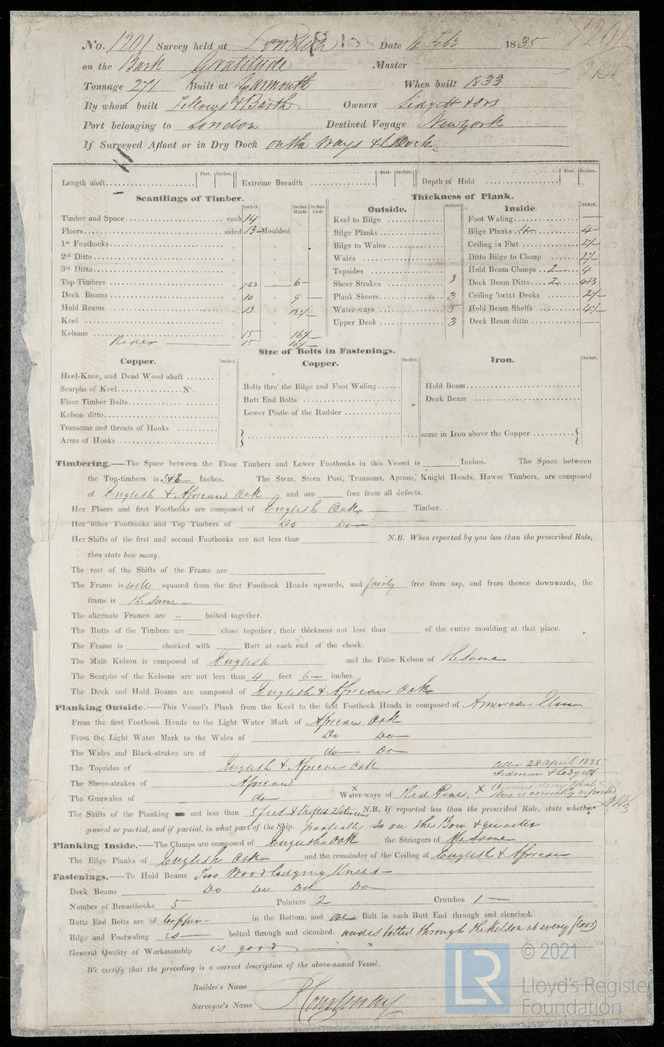 No. 1201 Survey held at London Date 4 Feb 1835
on the Bark Gratitude Master
Tonnage 271 Built at Yarmouth When built 1833
By whom built Fellows & Barth Owners Lidgett & Sons
Port belonging to London Destined Voyage New York
If Surveyed Afloat or in Dry Dock on the Ways &
Length aloft Feet. Inches. Extreme Breadth Feet. Inches. Depth of Hold Feet. Inches.
Scantlings of Timber.
Timber and Space each 14
Floors sided 13 Moulded
1st Foothooks
2nd Ditto
3rd Ditto
Top Timbers 6
Deck Beams 10 9
Hold Beams 13
Keel
Kelsons 15
Rider 15
Thickness of Plank.
Outside.
Keel to Bilge
Bilge Planks
Bilge to Wales
Wales
Topsides
Sheer Strakes 3
Plank Sheers 3
Water-ways 5
Upper Deck 3
Inside.
Foot Waling
Bilge Planks 4 4
Ceiling in Flat
Ditto Bilge to Clamp
Hold Beam Clamps 2 4
Deck Beam Ditto 2 4&3
Ceiling 'twixt Decks
Hold Beam Shelfs
Deck Beam ditto
Size of Bolts in Fastenings.
Copper.
Heel-Knee, and Dead Wood abaft
Scarphs of Keel N°.
Floor Timber Bolts
Kelson ditto
Transoms and throats of Hooks
Arms of Hooks
Copper.
Bolts thro' the Bilge and Foot Waling
Butt End Bolts
Lower Pintle of the Rudder
same in Iron above the Copper
Iron.
Hold Beam
Deck Beam
Timbering.—The Space between the Floor Timbers and Lower Foothooks in this Vessel is Inches. The Space between
the Top-timbers is Inches. The Stem, Stern Post, Transoms, Aprons, Knight Heads, Hawse Timbers, are composed
of English & African Oak and are free from all defects.
Her Floors and first Foothooks are composed of English Oak Timber.
Her other Foothooks and Top Timbers of Do Do
Her Shifts of the first and second Foothooks are not less than N.B. When reported by you less than the prescribed Rule,
then state how many.
The rest of the Shifts of the Frame are
The Frame is well squared from the first Foothook Heads upwards, and fairly free from sap, and from thence downwards, the
frame is the same
The alternate Frames are bolted together.
The Butts of the Timbers are close together; their thickness not less than of the entire moulding at that place.
The Frame is chocked with Butt at each end of the chock.
The Main Kelson is composed of English and the False Kelson of the same
The Scarphs of the Kelsons are not less than 4 feet 6 inches.
The Deck and Hold Beams are composed of English & African Oak
Planking Outside.—This Vessel's Plank from the Keel to the first Foothook Heads is composed of American Elm
From the first Foothook Heads to the Light Water Mark of African Oak
From the Light Water Mark to the Wales of Do Do
The Wales and Black-strakes are of do Do
The Topsides of English & African Oak
28 April 1835
The Sheer-strakes of African
The Gunwales of do x Water-ways of Red Pine x
The Shifts of the Planking are not less than 5 feet & Shifted N.B. If reported less than the prescribed Rule, state whether
general or partial, and if partial, in what part of the Ship. partially so on the Bow & quarter
Planking Inside.—The Clamps are composed of English Oak the Stringers of the same
The Bilge Planks of English Oak and the remainder of the Ceiling of English & African
Fastenings.—To Hold Beams Two Wood lodging knees
Deck Beams Do Do Do Do
Number of Breasthooks 5 Pointers 2 Crutches 1
Butts End Bolts are of Copper in the Bottom, and one Bolt in each Butt End through and clenched.
Bilge and Footwaling is bolted through and clenched. and is bolted through the Kelson at every floor
General Quality of Workmanship is good
We certify that the preceding is a correct description of the above-named Vessel.
Builder's Name
Surveyor's Name P. Courtenay
LR
© 2021
Lloyd's Register
Foundation